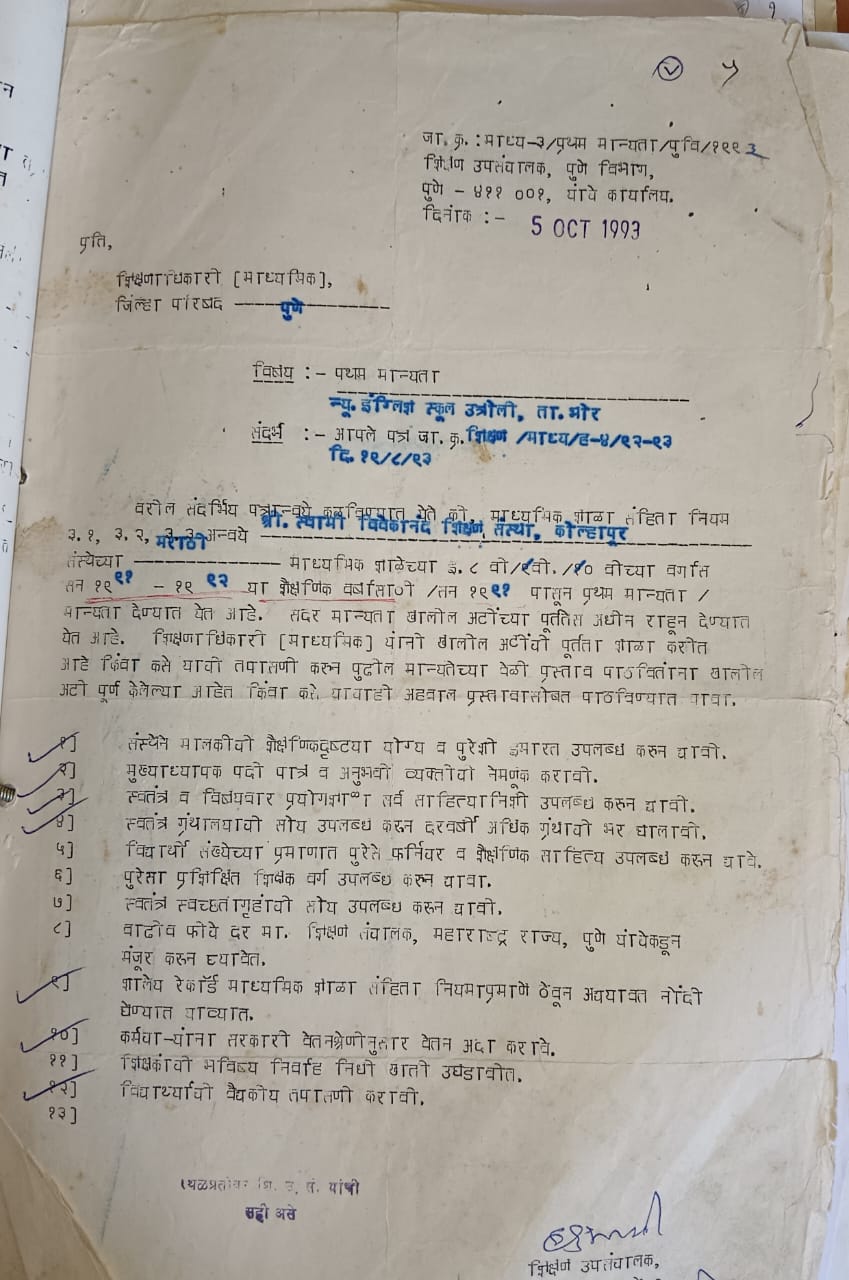 ५
जा. क्र. :माध्य-३/प्रथम मान्यता/पुवि/१९९३
शिक्षण उपसंचालक, पुणे विभाग,
पुणे - ४११ ००१, यांचे कार्यालय.
दिनांक :- 5 OCT 1993
प्रति,
शिक्षणाधिकारी [माध्यमिक],
जिल्हा परिषद पुणे
विषय :- प्रथम मान्यता
न्यू. इंग्लिश स्कूल उत्रौली, ता. भोर
संदर्भ :- आपले पत्र जा. क्र. शिक्षण /माध्य/ह-४/९२-९३
दि. १९/८/९३
वरील संदर्भिय पत्रान्वये कळविण्यात येते की, माध्यमिक शाळा संहिता नियम
श्री. स्वामी विवेकानंद शिक्षण संस्था, कोल्हापूर
३.१, ३.२, ३.३ अन्वये
मराठी
संस्थेच्या माध्यमिक शाळेच्या इ. ८ वी/९वी. /१० वीच्या वर्गास
सन १९९१ - १९९२ या शैक्षणिक वर्षासाठी /सन १९९१ पासून प्रथम मान्यता /
मान्यता देण्यात येत आहे. सदर मान्यता खालील अटींच्या पूर्ततेस अधीन राहून देण्यात
येत आहे. शिक्षणाधिकारी [माध्यमिक] यांनी खालील अटींची पूर्तता शाळा करीत
आहे किंवा कसे याची तपासणी करून पुढील मान्यतेच्या वेळी प्रस्ताव पाठवितांना खालील
अटी पूर्ण केलेल्या आहेत किंवा कसे याचाही अहवाल प्रस्तावासोबत पाठविण्यात यावा.
१] संस्थेने मालकीची शैक्षणिकदृष्टया योग्य व पुरेशी इमारत उपलब्ध करून द्यावी.
२] मुख्याध्यापक पदी पात्र व अनुभवी व्यक्तीची नेमणूक करावी.
३] स्वतंत्र व विषयवार प्रयोगशाळा सर्व साहित्यानिशी उपलब्ध करून द्यावी.
४] स्वतंत्र ग्रंथालयाची सोय उपलब्ध करून दरवर्षी अधिक ग्रंथाची भर घालावी.
५] विद्यार्थी संख्येच्या प्रमाणात पुरेसे फर्निचर व शैक्षणिक साहित्य उपलब्ध करून द्यावे.
६] पुरेसा प्रशिक्षित शिक्षक वर्ग उपलब्ध करून द्यावा.
७] स्वतंत्र स्वच्छतागृहांची सोय उपलब्ध करून द्यावी.
८] वाढीव फीचे दर मा. शिक्षण संचालक, महाराष्ट्र राज्य, पुणे यांचेकडून
मंजूर करून घ्यावेत.
९] शालेय रेकॉर्ड माध्यमिक शाळा संहिता नियमाप्रमाणे ठेवून अद्ययावत नोंदी
घेण्यात याव्यात.
१०] कर्मचा-यांना सरकारी वेतनश्रेणीनुसार वेतन अदा करावे.
११] शिक्षकांची भविष्य निर्वाह निधी खाती उघडावीत.
१२] विद्यार्थ्यांची वैद्यकीय तपासणी करावी.
१३]
स्थळप्रतीवर शि. उ. सं. यांची
सही असे
शिक्षण उपसंचालक,